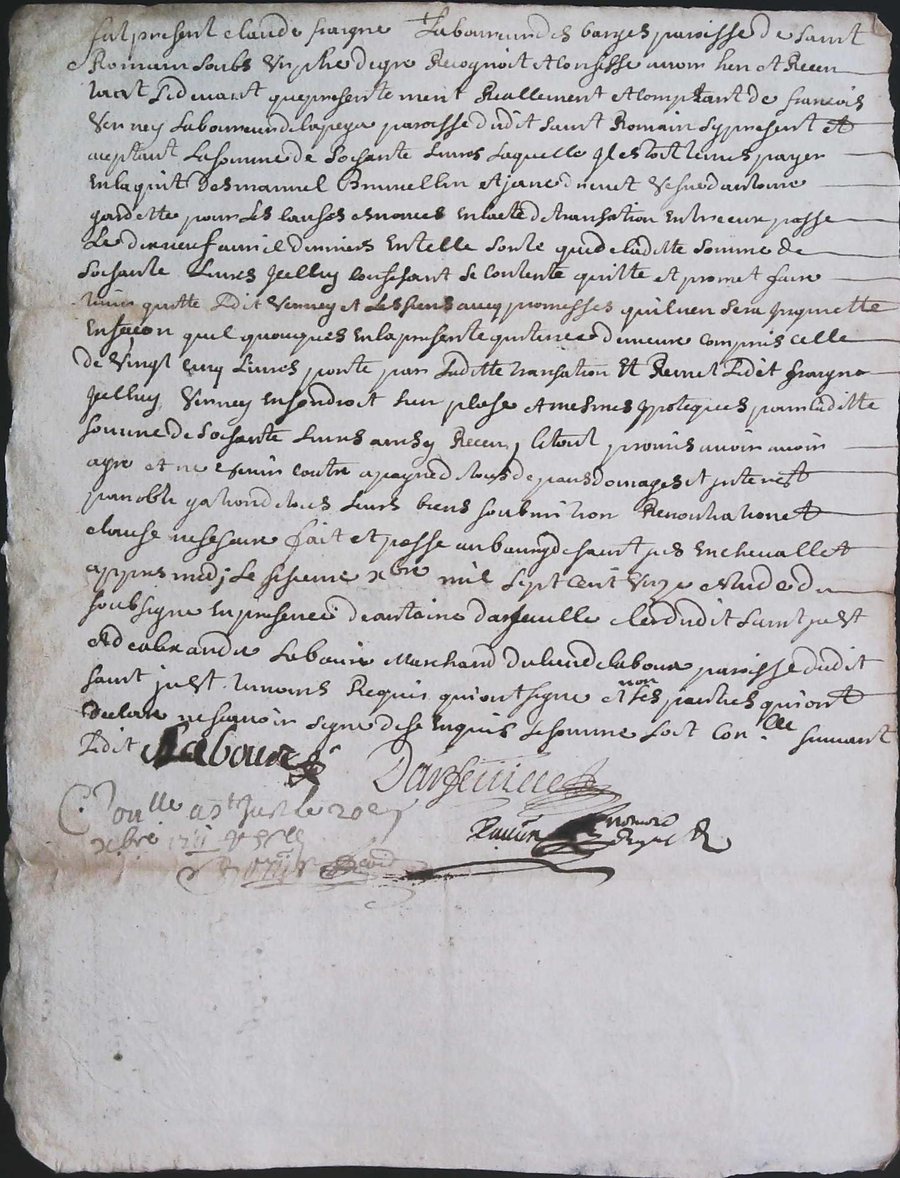 fut present claude fraigne Laboureur des barges paroisse de saint
Romain soubs Urphe de gre Recognoit et confesse avoir heu et Receu
tant cydevant que presentement Reallement et comptant de francois
Verney Laboureur de lapeye paroisse dudit saint Romain sy present et
aceptant la somme de soisante Livres laquelle il estoit tenus payer
en laquit desmanuel Brunellin et jane vefve dantoine
gardette pour les causes enonces en lacte de transation entre eux passe
Le dixneuf avril derniers en telle sorte que de laditte somme de
soisante Livres jcelluy confessant se contente quitte et promet faire
tenir quitte Ledit Verney et les siens avecq promesses quil nen sera jnquiette
en facon quelquonques en la presente quitance demeure compris celle
de vingt cinq Livres porte par laditte transation Et Remet Ledit fraigne
jcelluy Verney en son droit lieu plase et mesmes ypoteques pour laditte
somme de soisante Livres ainsy Receu, le tout promis avoir
agre et ne venir contre a payne de tous despans domages et jnterest
par obligation de tous leurs biens soubmition Renontiation et
clause nesesere fait et passe au bourg de saint just en chevallet
appres medj Le seisieme xbre mil sept cent unze
soubsigne en presence de antoine darfeuille clerc dudit saint just
et de alexandre Labouré Marchand du lieu de laboure paroisse dudit
saint just tesmoins Requis qui ont signe et non les parties qui ont
declare ne scavoir signe de ce enquis et somme soit con.lle suivant
Ledit
Laboure
Darfeuille
Con.lle a St Just le 20e
xbre 1711